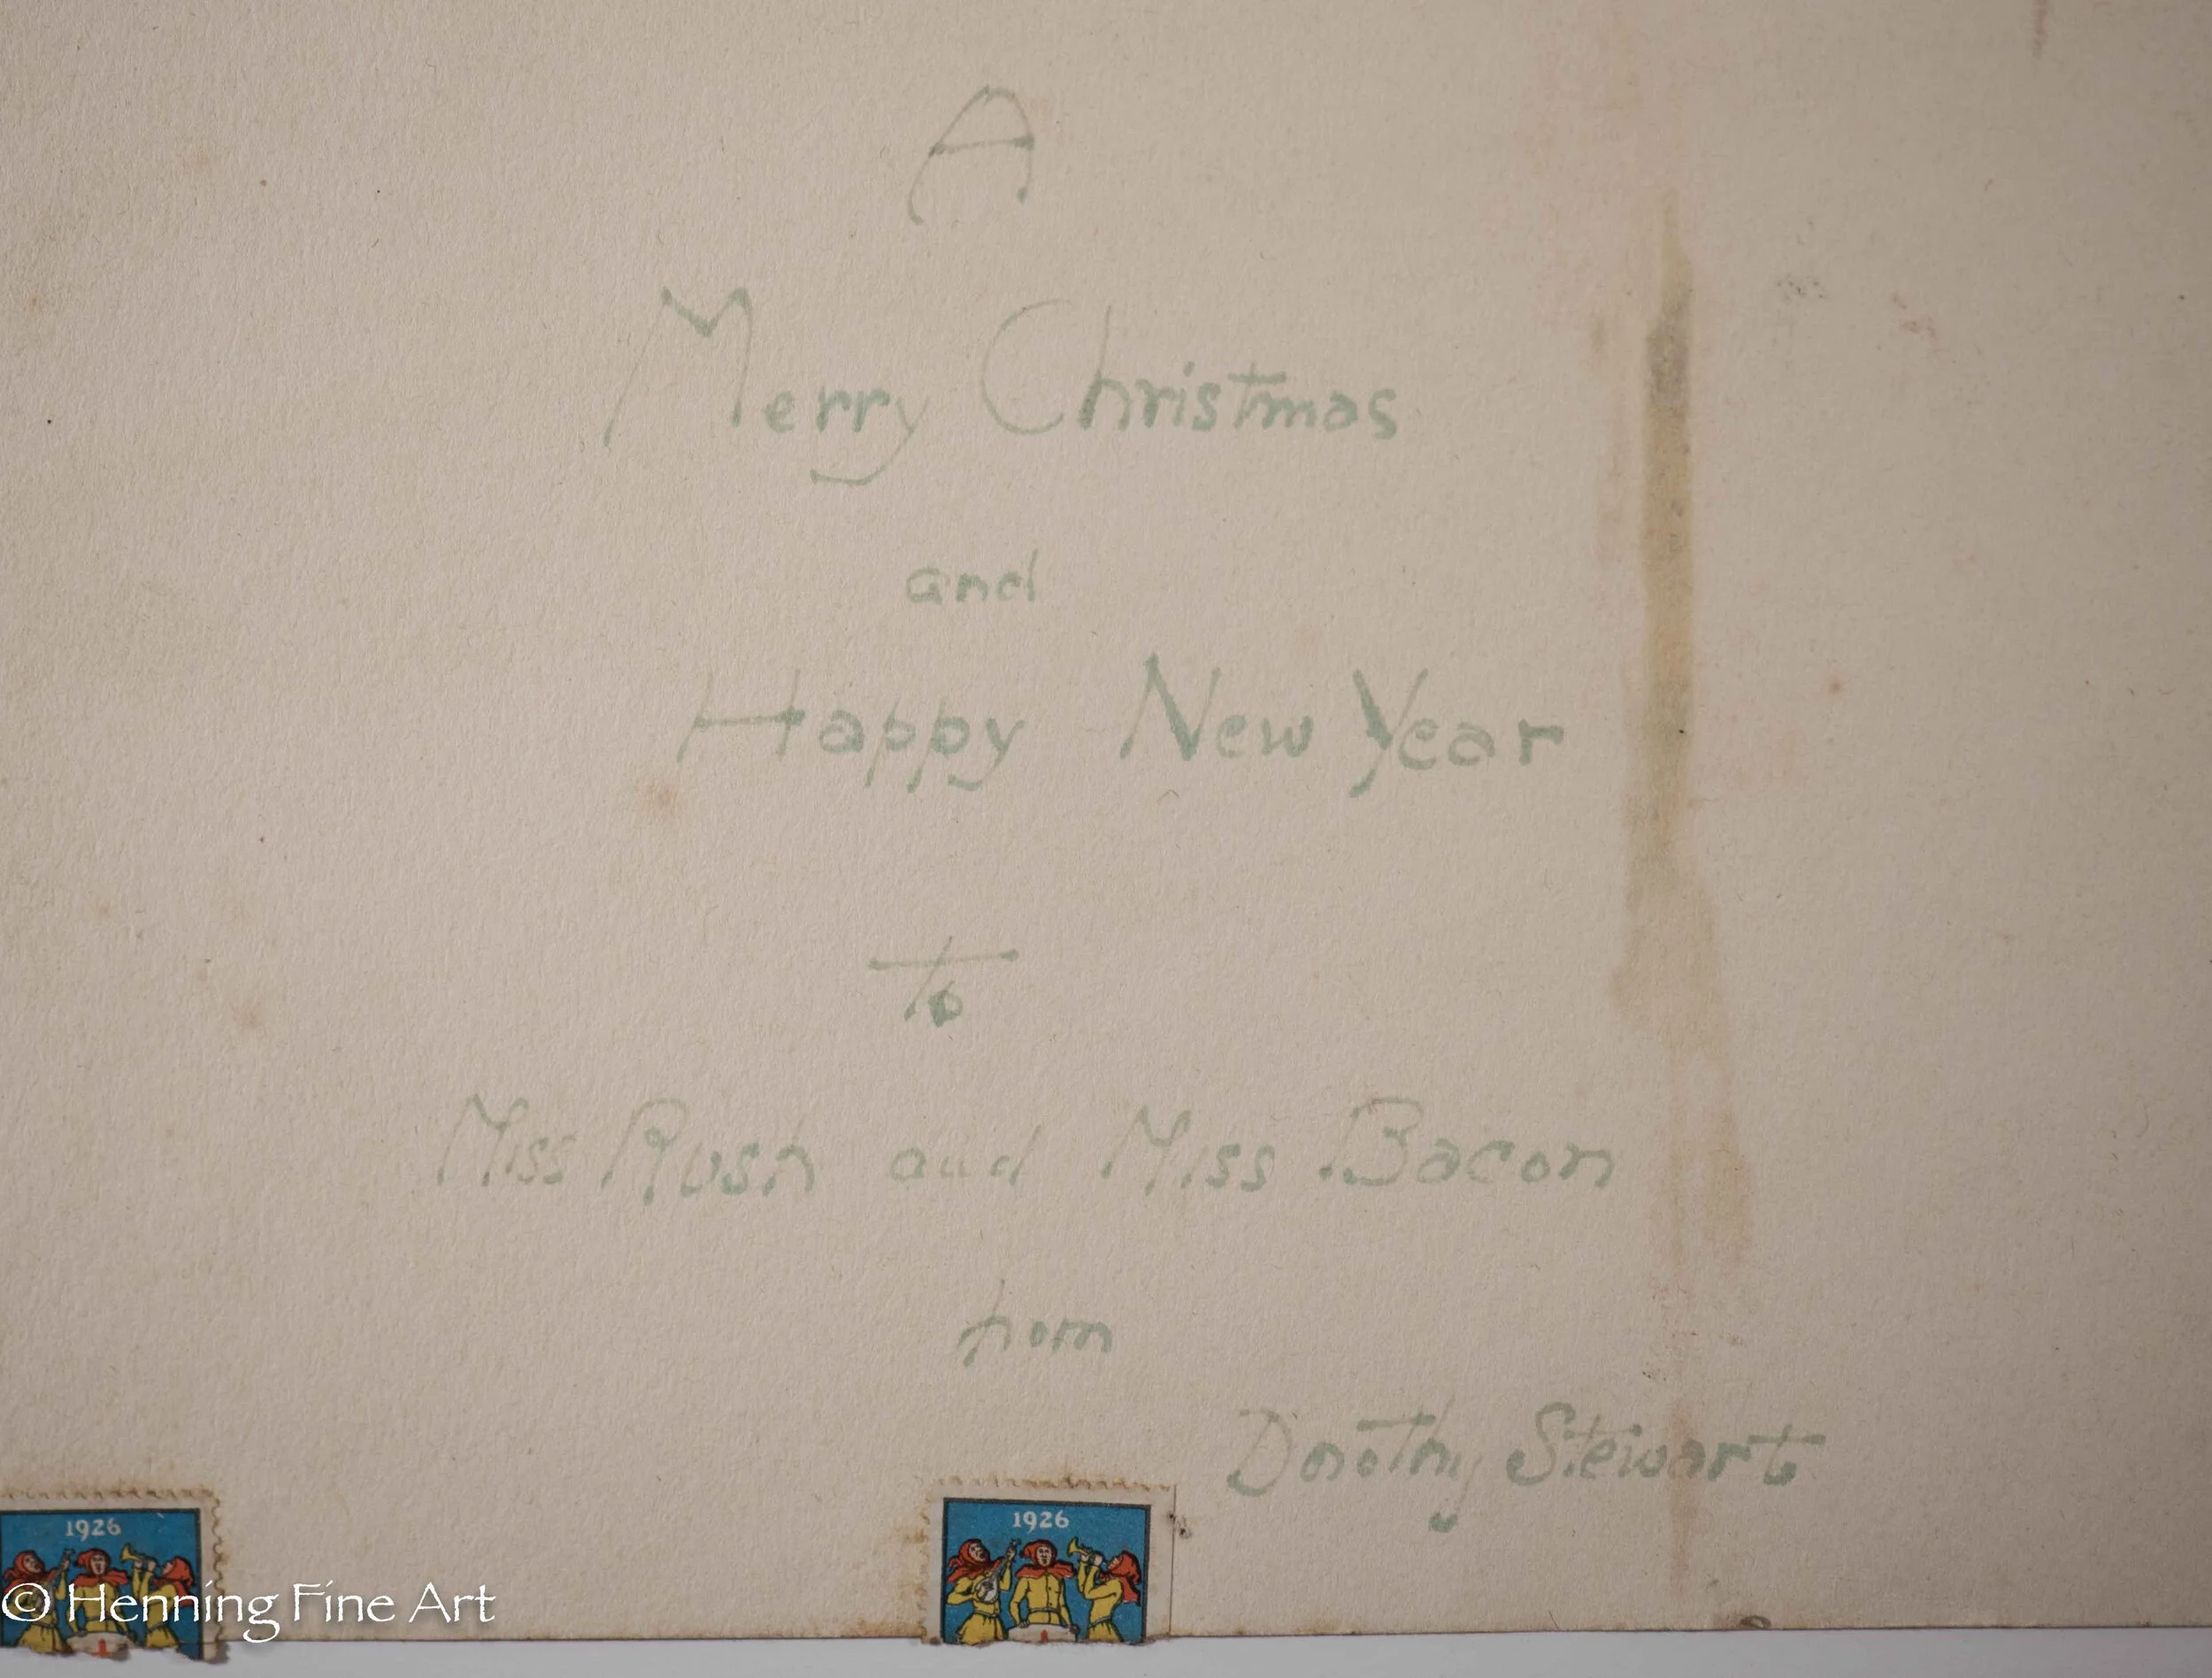 A
Merry Christmas
and
Happy New Year
to
Miss Rush and Miss Bacon
from
Dorothy Stewart
1926
1926
© Henning Fine Art